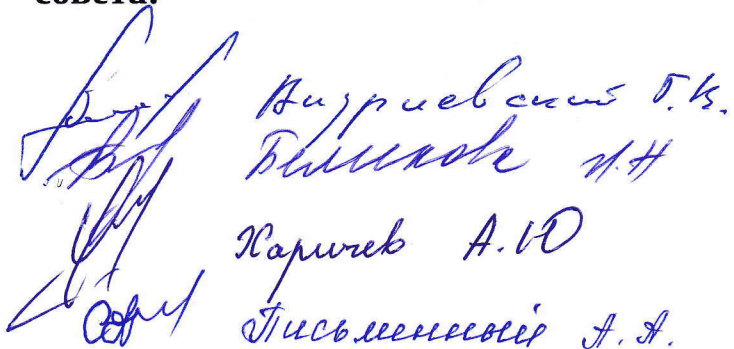 совета:
Андриевский Г.В.
Беликов И.Н
Харичев А.Ю
Письменный А.А.